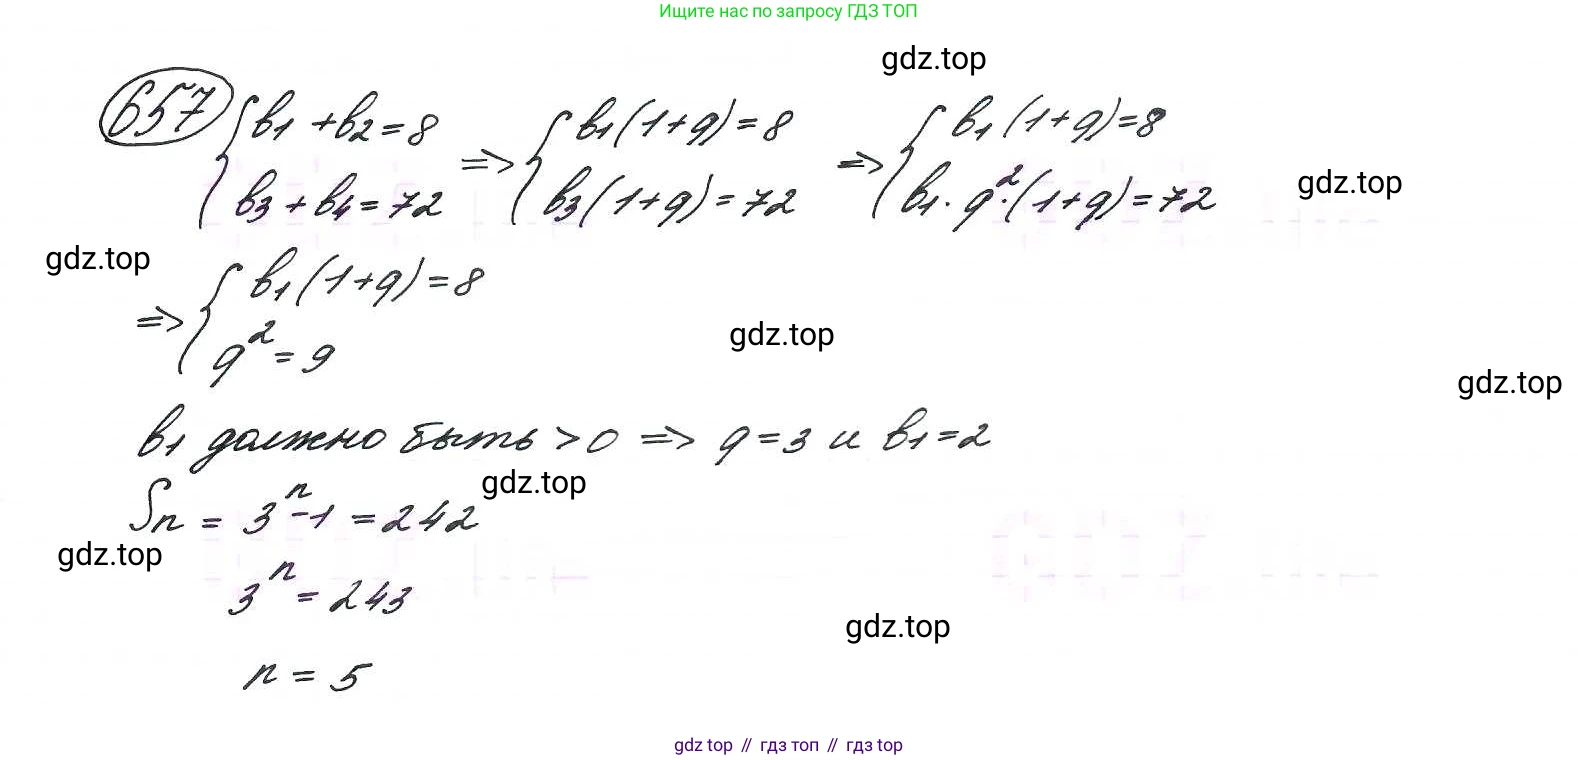 Ищите нас по запросу ГДЗ ТОП
gdz.top
657 { b1 + b2 = 8 => { b1(1+q) = 8 => { b1(1+q)=8
b3 + b4 = 72 b3(1+q) = 72 b1·q²·(1+q)=72
gdz.top
gdz.top
=> { b1(1+q) = 8
q² = 9
gdz.top
gdz.top
b1 должно быть > 0 => q = 3 и b1 = 2
gdz.top
Sn = 3ⁿ - 1 = 242
gdz.top
3ⁿ = 243
gdz.top
n = 5
gdz top // гдз топ // гдз top